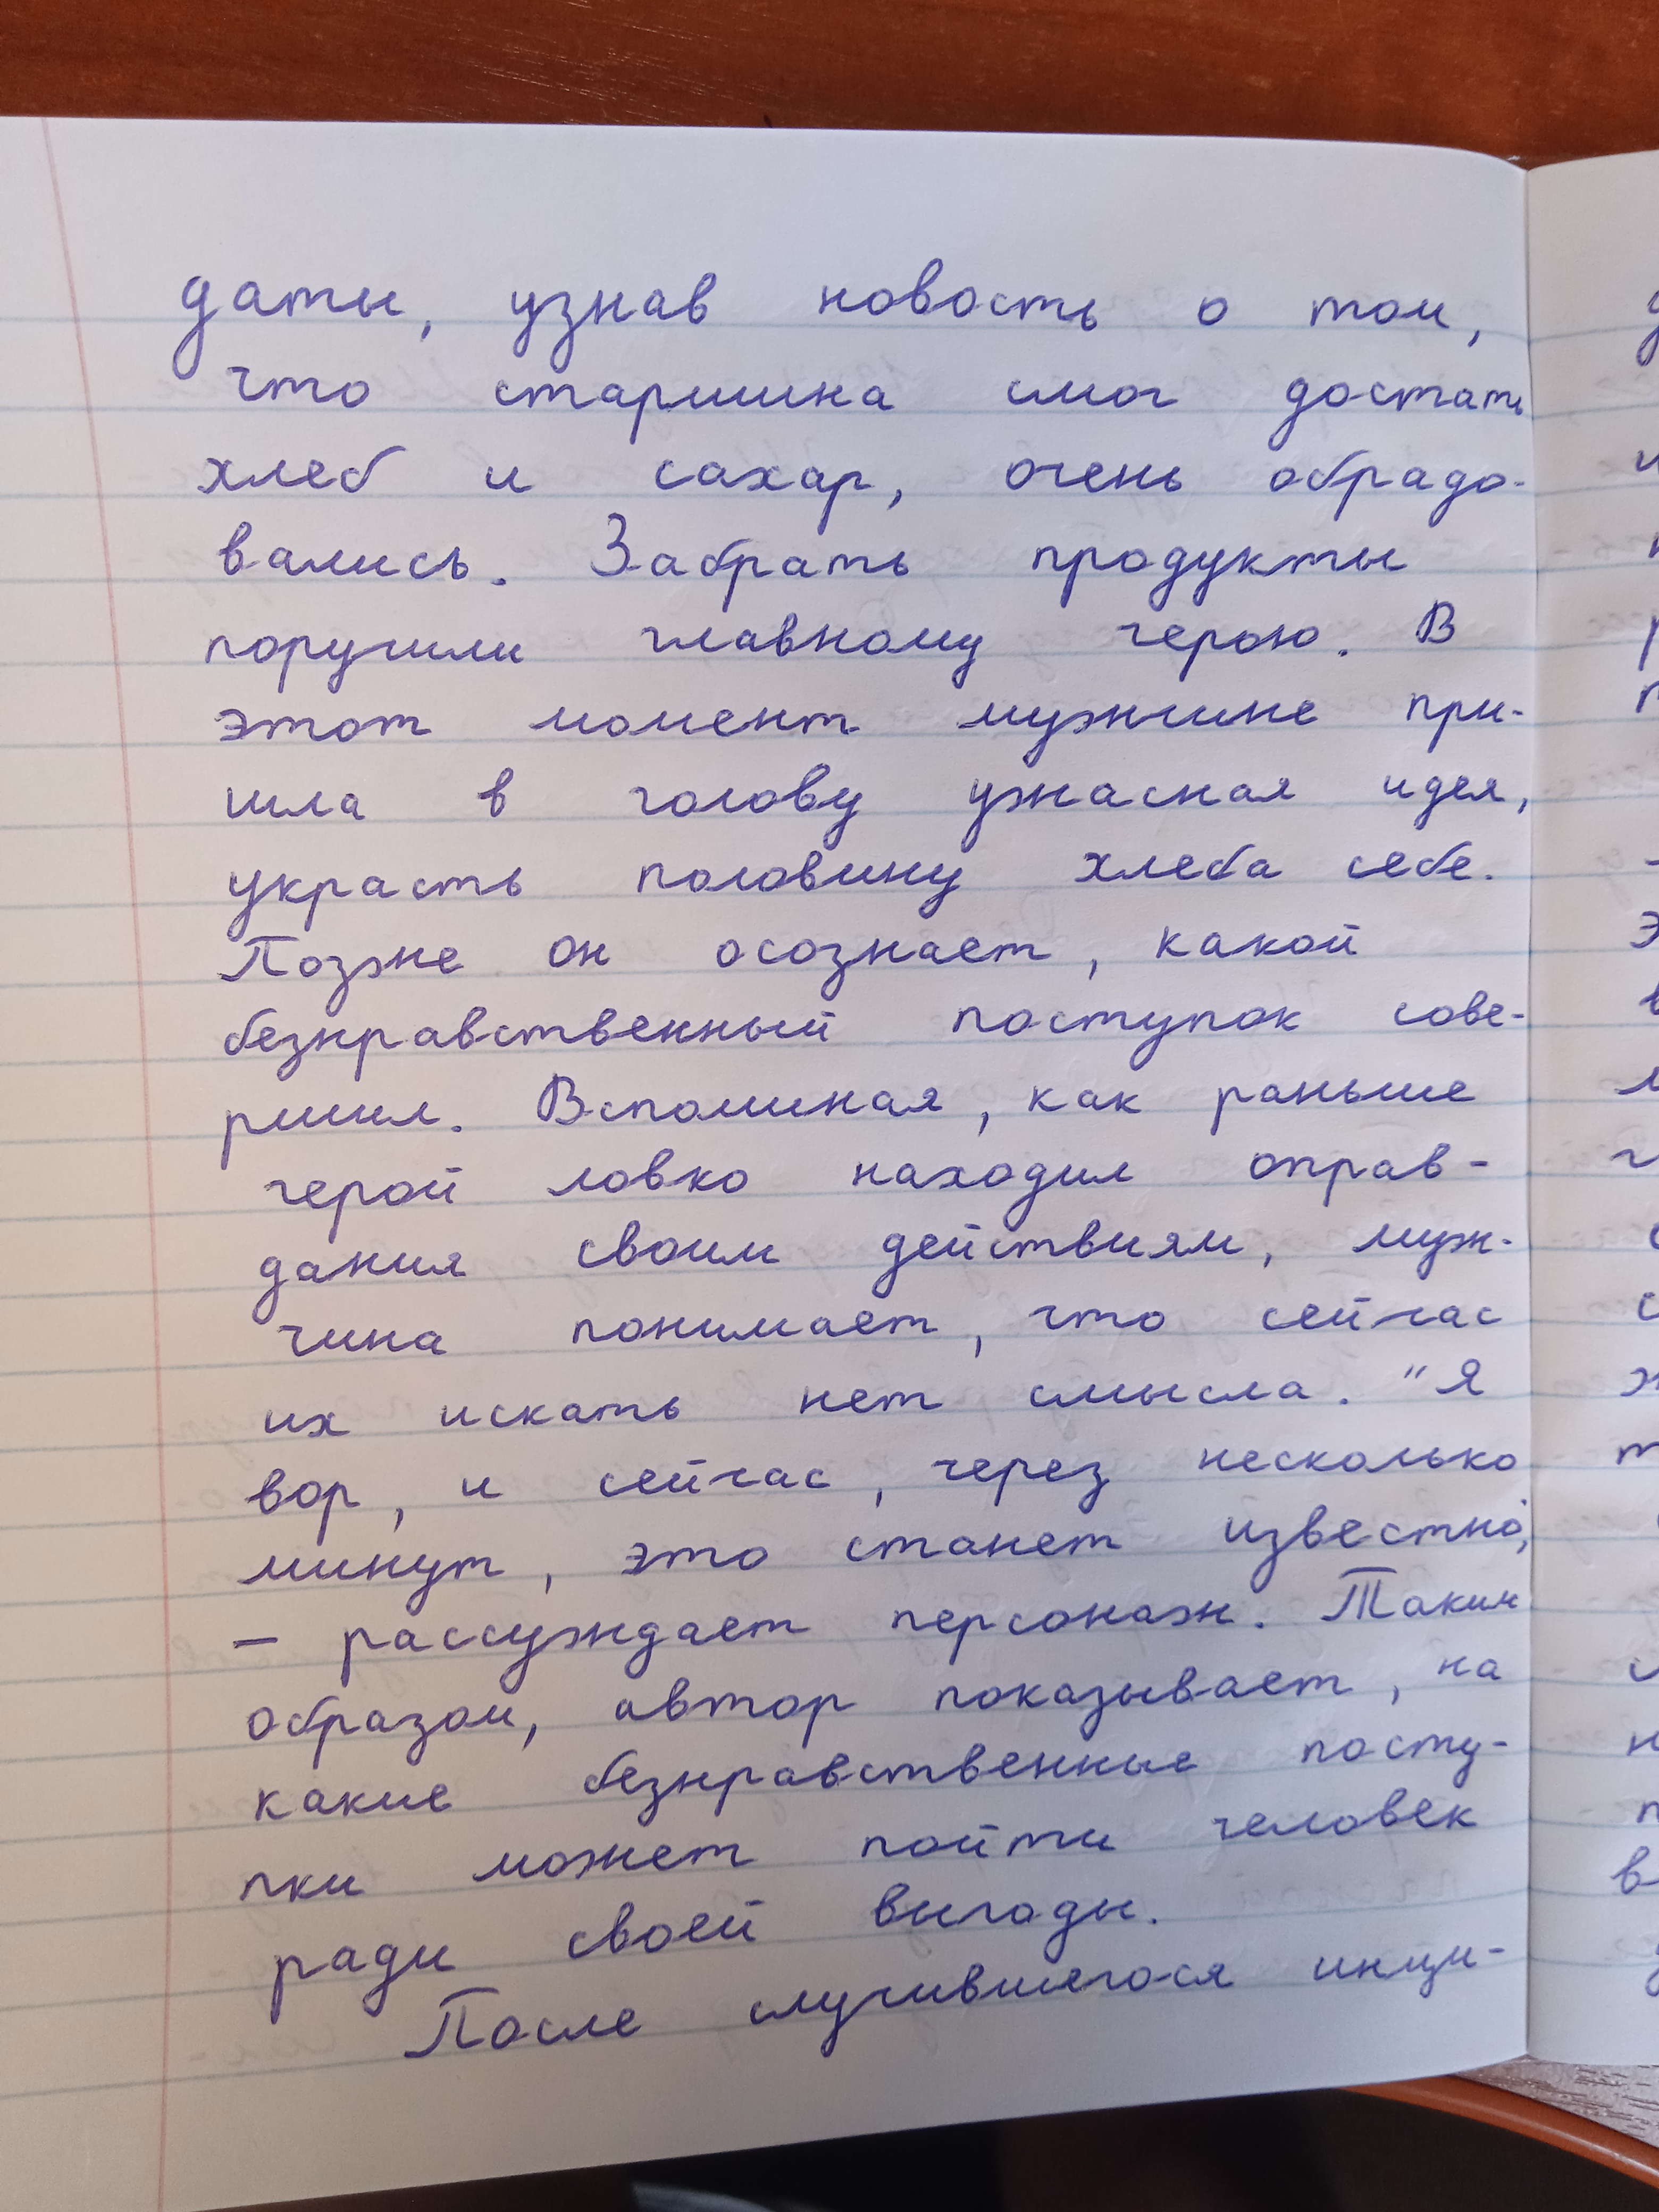 даты, узнав новость о том,
что старшина смог достать
хлеб и сахар, очень обрадо-
вались. Забрать продукты
поручили главному герою. В
этот момент мужчине при-
шла в голову ужасная идея,
украсть половину хлеба себе.
Позже он осознает, какой
безнравственный поступок сове-
ршил. Вспоминая, как раньше
герой ловко находил оправ-
дания своим действиям, муж-
чина понимает, что сейчас
их искать нет смысла. "Я
вор, и сейчас, через несколько
минут, это станет известно",
— рассуждает персонаж. Таким
образом, автор показывает, на
какие безнравственные посту-
пки может пойти человек
ради своей выгоды.
После случившегося инци-